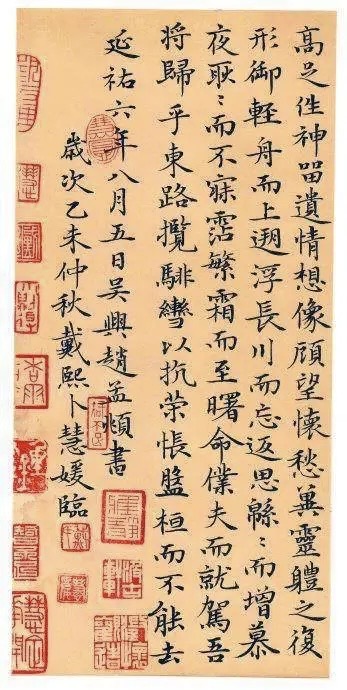 高足往神留遺情想像顧望懷愁兾靈體之復
形御輕舟而上遡浮長川而忘返思緜〻而增慕
夜耿〻而不寐霑繁霜而至曙命僕夫而就駕吾
将歸乎東路攬騑轡以抗荣悵盤桓而不能去
延祐六年八月五日吴興趙孟頫書
歲次乙未仲秋戴熙卜慧媛臨